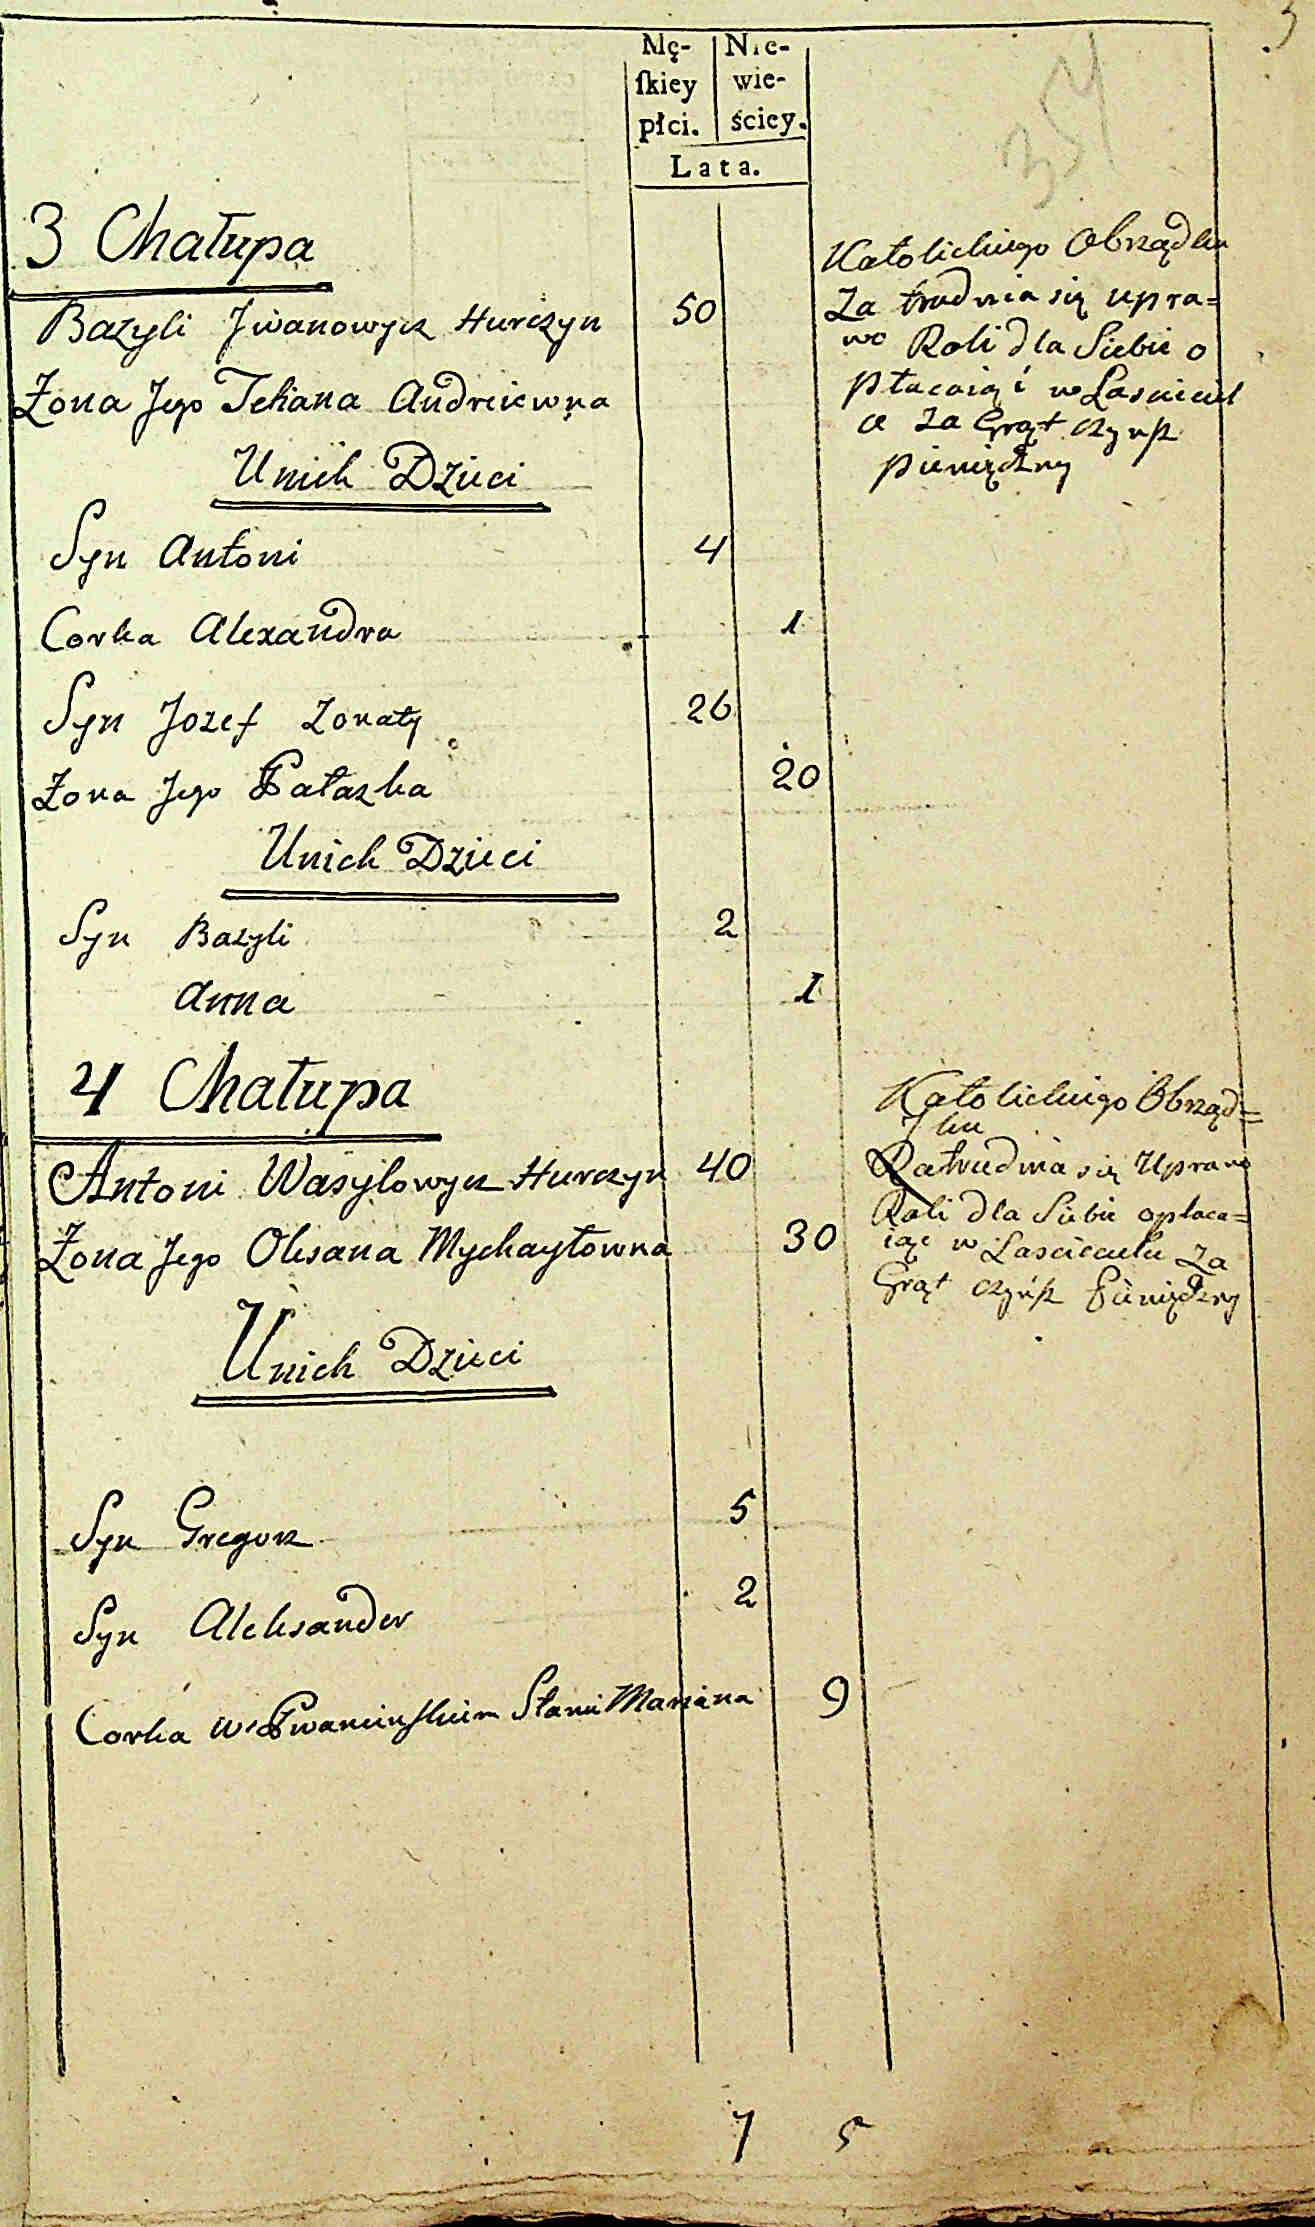 Mę- Nie-
ſkiey wie-
płci. ściey.
Lata.
3 Chałupa
Bazyli Jwanowycz Hurczyn 50
Żona Jego Tekiana Andreiewna
Unich Dzieci
Syn Antoni 4
Corka Alexandra 1
Syn Jozef Zonaty 26
Żona Jego Pałazka 20
Unich Dzieci
Syn Bazyli 2
Anna 1
Katolickiego Obrządku
Zatrudnia się upra=
wo Roli dla Siebie o
płacaią i w Łascicul
e za Grąt czynsz
pieniężny
4 Chałupa
Antoni Wasylowycz Hurczyn 40
Żona Jego Oksana Mychayłowna 30
Unich Dzieci
Syn Gregorz 5
Syn Aleksander 2
Corka w Stanu Mariana 9
Katolickiego Obrząd=
ku
Zatrudnia się Upraw
Roli dla Siebie opłaca=
iąc w Łascicielu za
Grąt czynsz Pieniężny
7 5